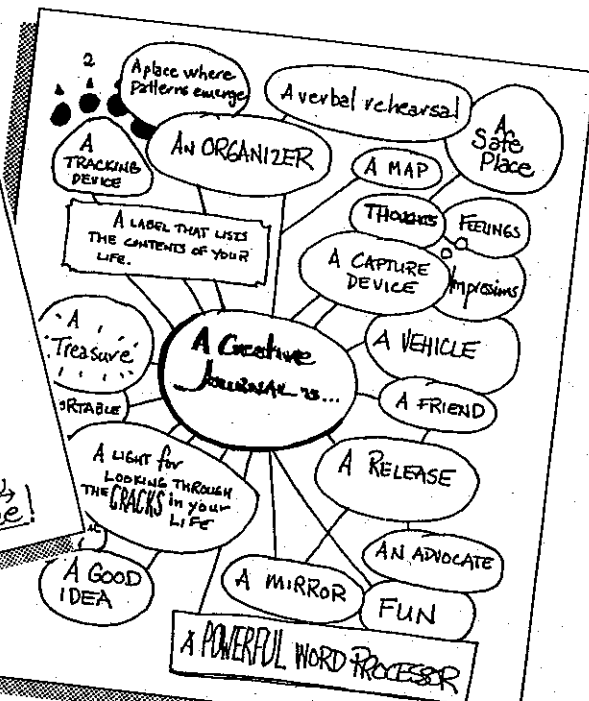 2
A place where
Patterns emerge
A verbal rehearsal
A
Safe
Place
A
TRACKING
DEVICE
AN ORGANIZER
A MAP
THOUGHTS
FEELINGS
Impressions
A LABEL THAT LISTS
THE CONTENTS OF YOUR
LIFE.
A CAPTURE
DEVICE
A
Treasure
A Creative
JOURNAL is...
A VEHICLE
A FRIEND
A LIGHT for
LOOKING THROUGH
THE CRACKS in your
LIFE
A RELEASE
AN ADVOCATE
A GOOD
IDEA
A MIRROR
FUN
A POWERFUL WORD PROCESSOR